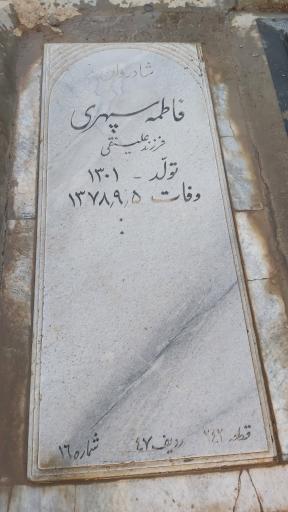 شادروان
فاطمه سپهری
فرزند علینقی
تولّد - ۱۳۰۱
وفات ۱۳۷۸٫۹٫۵
قطعه ردیف ۴۷ شماره ۱۶